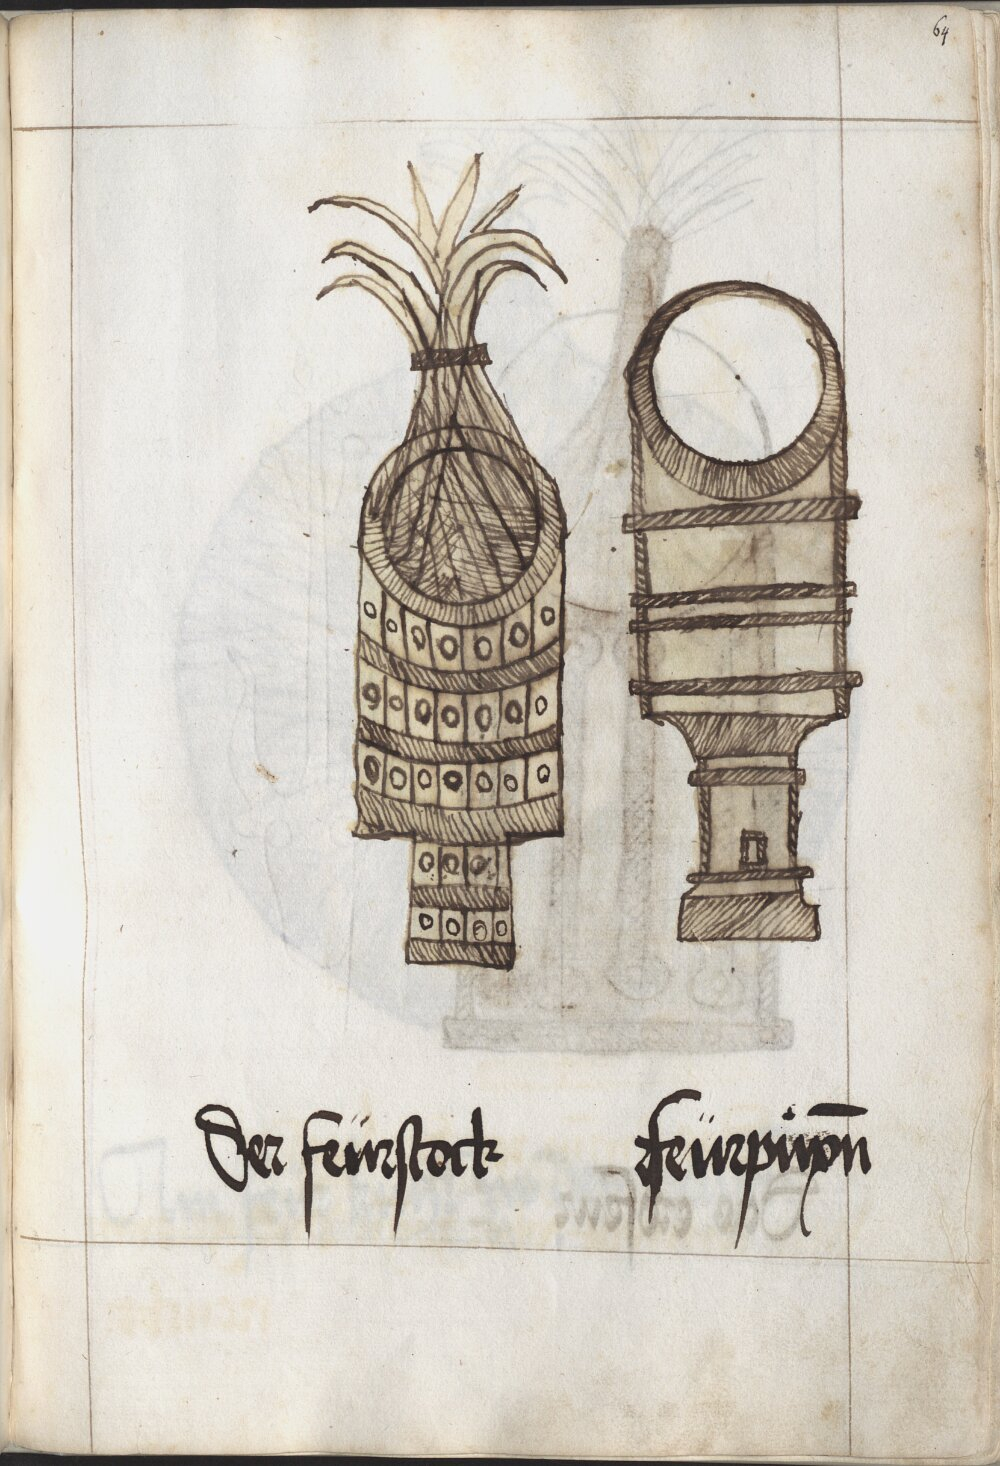 64
Der feürstock feürpüxn̄